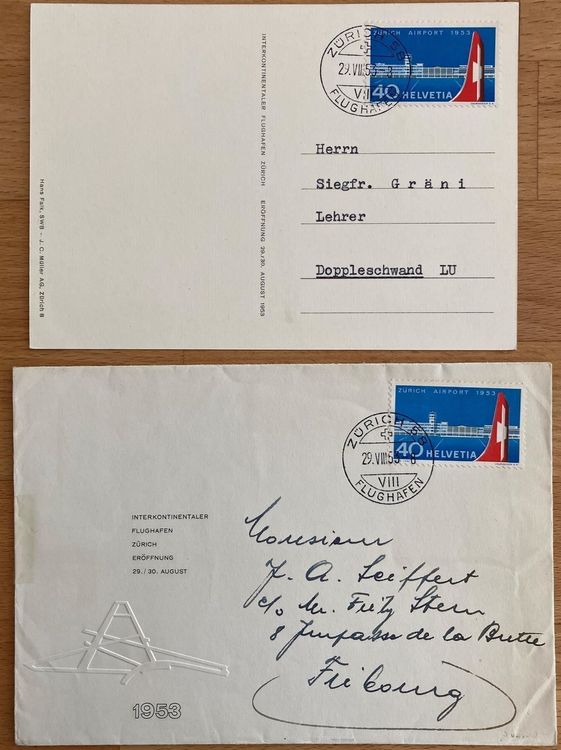 ZÜRICH AIRPORT 1953
40 HELVETIA
ZÜRICH 58
29.VIII.53
VIII
FLUGHAFEN
Herrn
Siegfr. Gräni
Lehrer
Doppleschwand LU
INTERKONTINENTALER FLUGHAFEN ZÜRICH ERÖFFNUNG 29./30. AUGUST 1953
Hans Falk, SWB - J. C. Müller AG, Zürich 8
ZÜRICH AIRPORT 1953
40 HELVETIA
ZÜRICH 58
29.VIII.53
VIII
FLUGHAFEN
INTERKONTINENTALER
FLUGHAFEN
ZÜRICH
ERÖFFNUNG
29./30. AUGUST
1953
Monsieur
J. A. Seiffert
c/o Mr. Fritz Stern
8 Impasse de la Butte
Fribourg